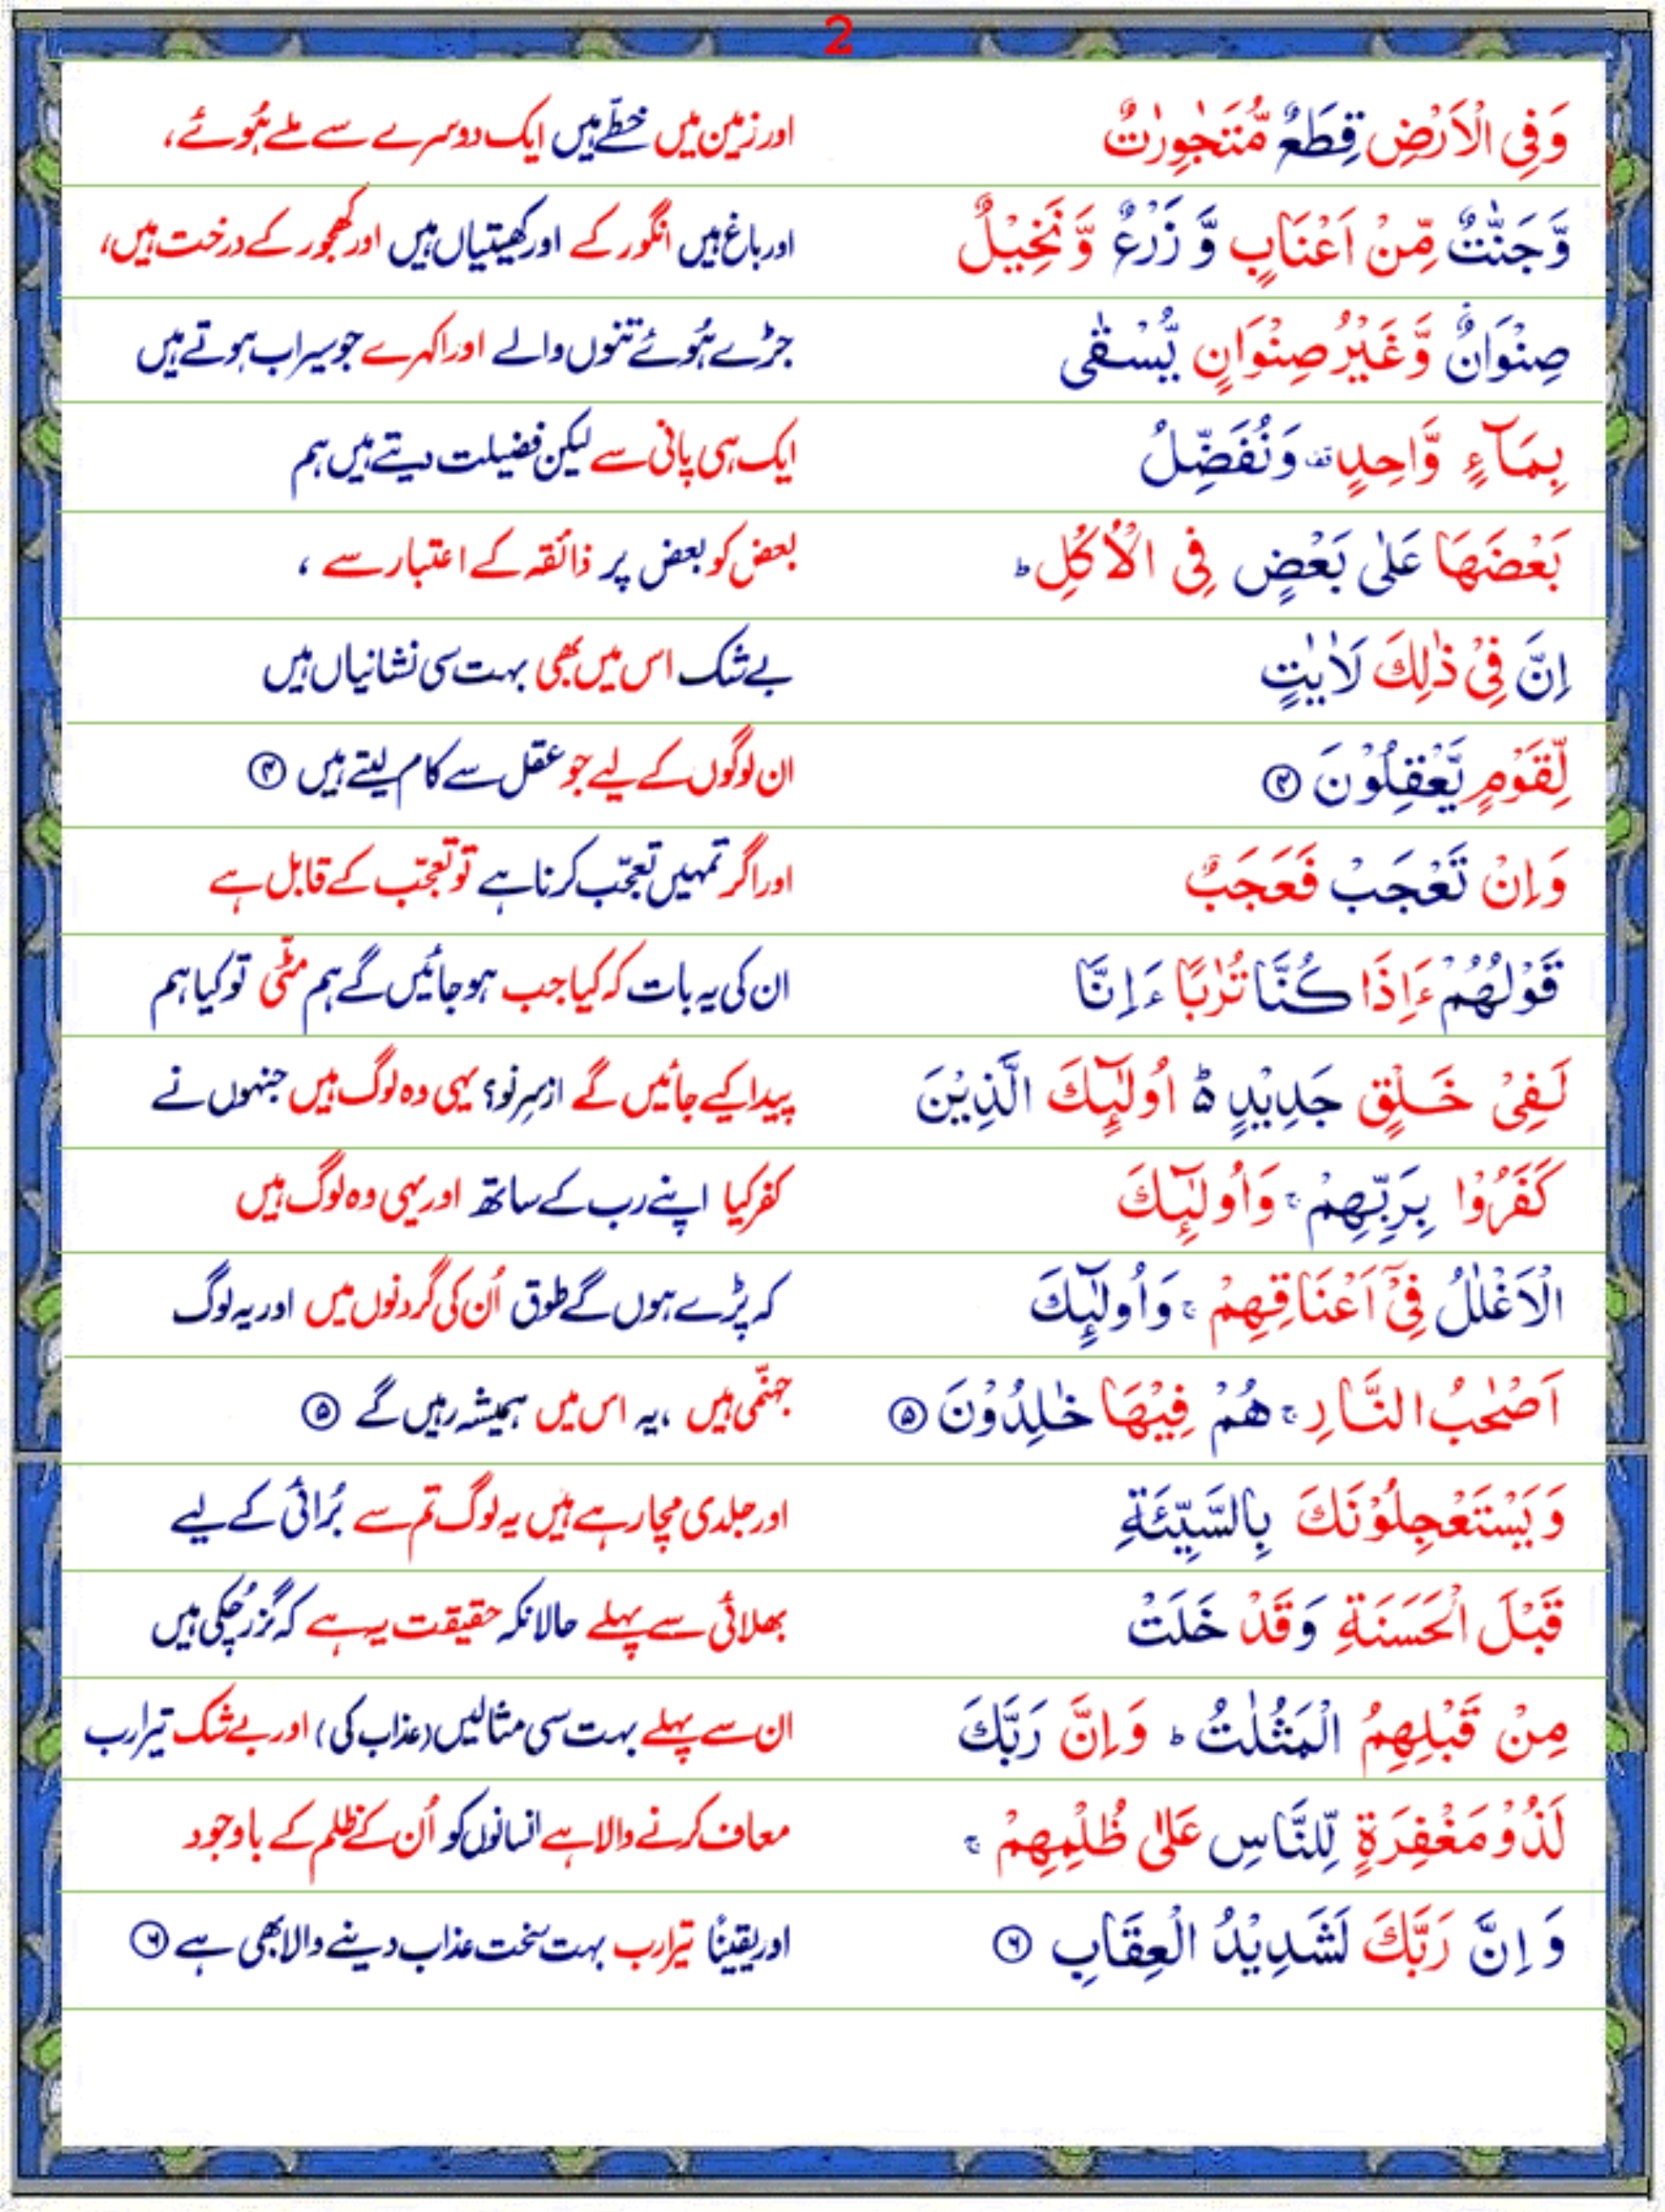 2
وَفِی الْاَرْضِ قِطَعٌ مُّتَجٰوِرٰتٌ اور زمین میں خطّے ہیں ایک دوسرے سے ملے ہُوئے،
وَّجَنّٰتٌ مِّنْ اَعْنَابٍ وَّ زَرْعٌ وَّنَخِیْلٌ اور باغ ہیں انگور کے اور کھیتیاں ہیں اور کھجور کے درخت ہیں،
صِنْوَانٌ وَّغَیْرُ صِنْوَانٍ یُّسْقٰی جڑے ہُوئے تنوں والے اور اکہرے جو سیراب ہوتے ہیں
بِمَآءٍ وَّاحِدٍ قف وَنُفَضِّلُ ایک ہی پانی سے لیکن فضیلت دیتے ہیں ہم
بَعْضَهَا عَلٰی بَعْضٍ فِی الْاُکُلِ ؕ بعض کو بعض پر ذائقہ کے اعتبار سے ،
اِنَّ فِیْ ذٰلِكَ لَاٰیٰتٍ بے شک اس میں بھی بہت سی نشانیاں ہیں
لِّقَوْمٍ یَّعْقِلُوْنَ ۴ ان لوگوں کے لیے جو عقل سے کام لیتے ہیں ۴
وَاِنْ تَعْجَبْ فَعَجَبٌ اور اگر تمہیں تعجّب کرنا ہے تو تعجّب کے قابل ہے
قَوْلُهُمْ ءَاِذَا کُنَّا تُرٰبًا ءَاِنَّا ان کی یہ بات کہ کیا جب ہو جائیں گے ہم مٹّی تو کیا ہم
لَفِیْ خَلْقٍ جَدِیْدٍ ۬ؕ اُولٰٓئِكَ الَّذِیْنَ پیدا کیے جائیں گے ازسرِنو؟ یہی وہ لوگ ہیں جنہوں نے
کَفَرُوْا بِرَبِّهِمْ ۚ وَاُولٰٓئِكَ کفر کیا اپنے رب کے ساتھ اور یہی وہ لوگ ہیں
الْاَغْلٰلُ فِیْۤ اَعْنَاقِهِمْ ۚ وَاُولٰٓئِكَ کہ پڑے ہوں گے طوق اُن کی گردنوں میں اور یہ لوگ
اَصْحٰبُ النَّارِ ۚ هُمْ فِیْهَا خٰلِدُوْنَ ۵ جہنّمی ہیں ،یہ اس میں ہمیشہ رہیں گے ۵
وَیَسْتَعْجِلُوْنَكَ بِالسَّیِّئَةِ اور جلدی مچا رہے ہیں یہ لوگ تم سے بُرائی کے لیے
قَبْلَ الْحَسَنَةِ وَقَدْ خَلَتْ بھلائی سے پہلے حالانکہ حقیقت یہ ہے کہ گزر چُکی ہیں
مِنْ قَبْلِهِمُ الْمَثُلٰتُ ؕ وَاِنَّ رَبَّكَ ان سے پہلے بہت سی مثالیں (عذاب کی) اور بے شک تیرا رب
لَذُوْ مَغْفِرَةٍ لِّلنَّاسِ عَلٰی ظُلْمِهِمْ ۚ معاف کرنے والا ہے انسانوں کو اُن کے ظلم کے باوجود
وَ اِنَّ رَبَّكَ لَشَدِیْدُ الْعِقَابِ ۶ اور یقینًا تیرا رب بہت سخت عذاب دینے والا بھی ہے ۶